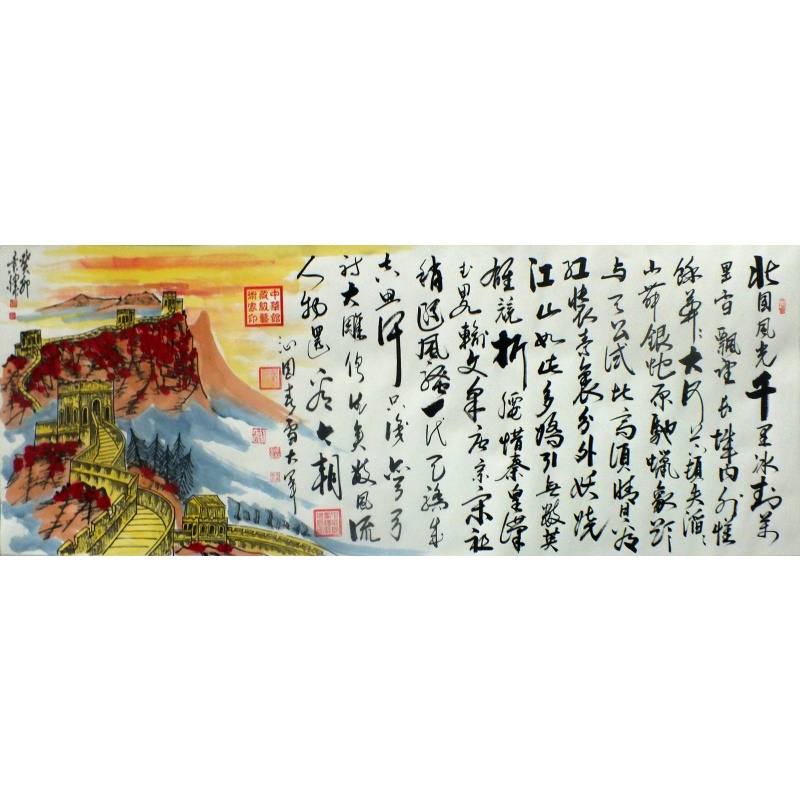 北国風光千里冰封万
里雪飘望长城内外惟
馀莽大河上下頓失滔滔
山舞银蛇原馳蠟象欲
与天公试比高須晴日看
红装素裹分外妖娆
江山如此多嬌引无数英
雄競折腰惜秦皇漢
武略輸文采唐宗宋祖
稍逊風骚一代天骄成
吉思汗只識弯弓
射大雕俱往矣数風流
人物還看今朝
沁园春雪大军
中華館
藏級藝
術家印
癸卯